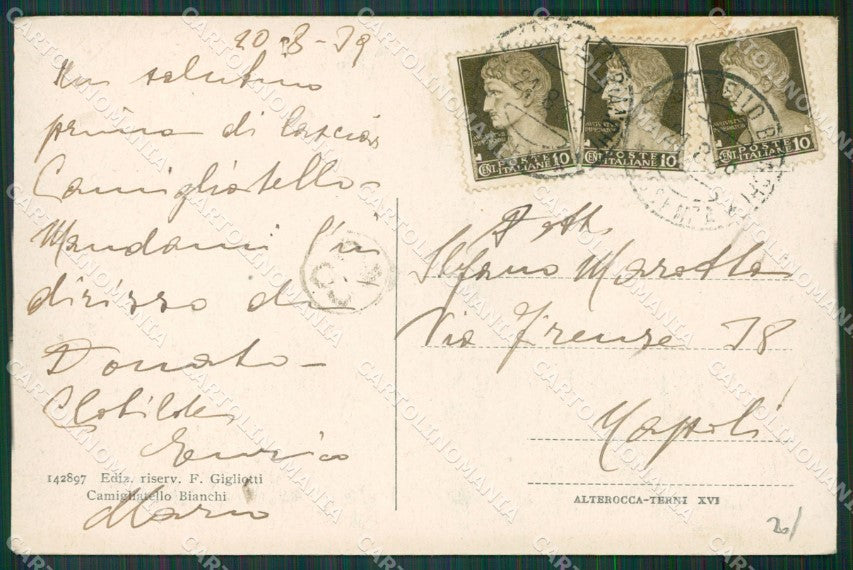 20-8-39
Un salutino
prima di lasciar
Camigliatello -
Mandami l'in
dirizzo di
Donato -
Clotilde
Enrico
Mario
142897 Ediz. riserv. F. Gigliotti
Camigliatello Bianchi
POSTE
ITALIANE
CENT. 10
POSTE
ITALIANE
CENT. 10
POSTE
ITALIANE
CENT. 10
Dott.
Stefano Marotta
Via Firenze 38
Napoli
ALTEROCCA-TERNI XVI
CARTOLINOMANIA